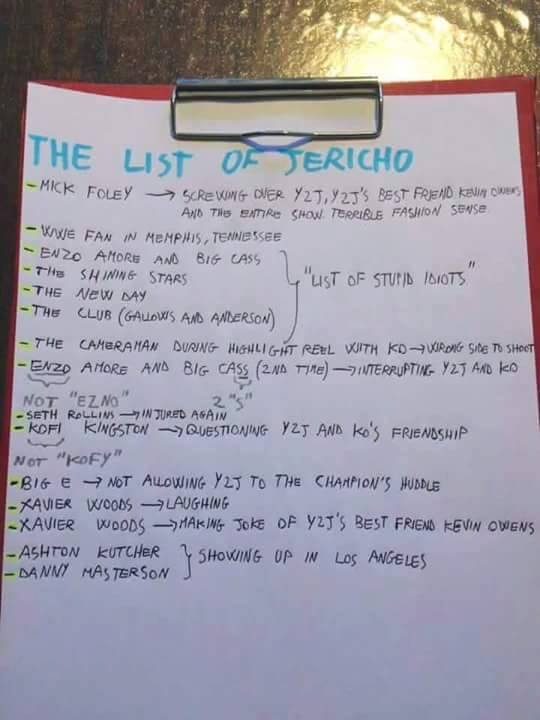 THE LIST OF JERICHO
- MICK FOLEY → SCREWING OVER Y2J, Y2J'S BEST FRIEND KEVIN OWENS
AND THE ENTIRE SHOW. TERRIBLE FASHION SENSE
- WWE FAN IN MEMPHIS, TENNESSEE
- ENZO AMORE AND BIG CASS
- THE SHINING STARS
"LIST OF STUPID IDIOTS"
- THE NEW DAY
- THE CLUB (GALLOWS AND ANDERSON)
- THE CAMERAMAN DURING HIGHLIGHT REEL WITH KO → WRONG SIDE TO SHOOT
- ENZO AMORE AND BIG CASS (2ND TIME) → INTERRUPTING Y2J AND KO
NOT "EZNO" 2 "S"
- SETH ROLLINS → INJURED AGAIN
- KOFI KINGSTON → QUESTIONING Y2J AND KO'S FRIENDSHIP
NOT "KOFY"
- BIG E → NOT ALLOWING Y2J TO THE CHAMPION'S HUDDLE
- XAVIER WOODS → LAUGHING
- XAVIER WOODS → MAKING JOKE OF Y2J'S BEST FRIEND KEVIN OWENS
- ASHTON KUTCHER
SHOWING UP IN LOS ANGELES
- DANNY MASTERSON